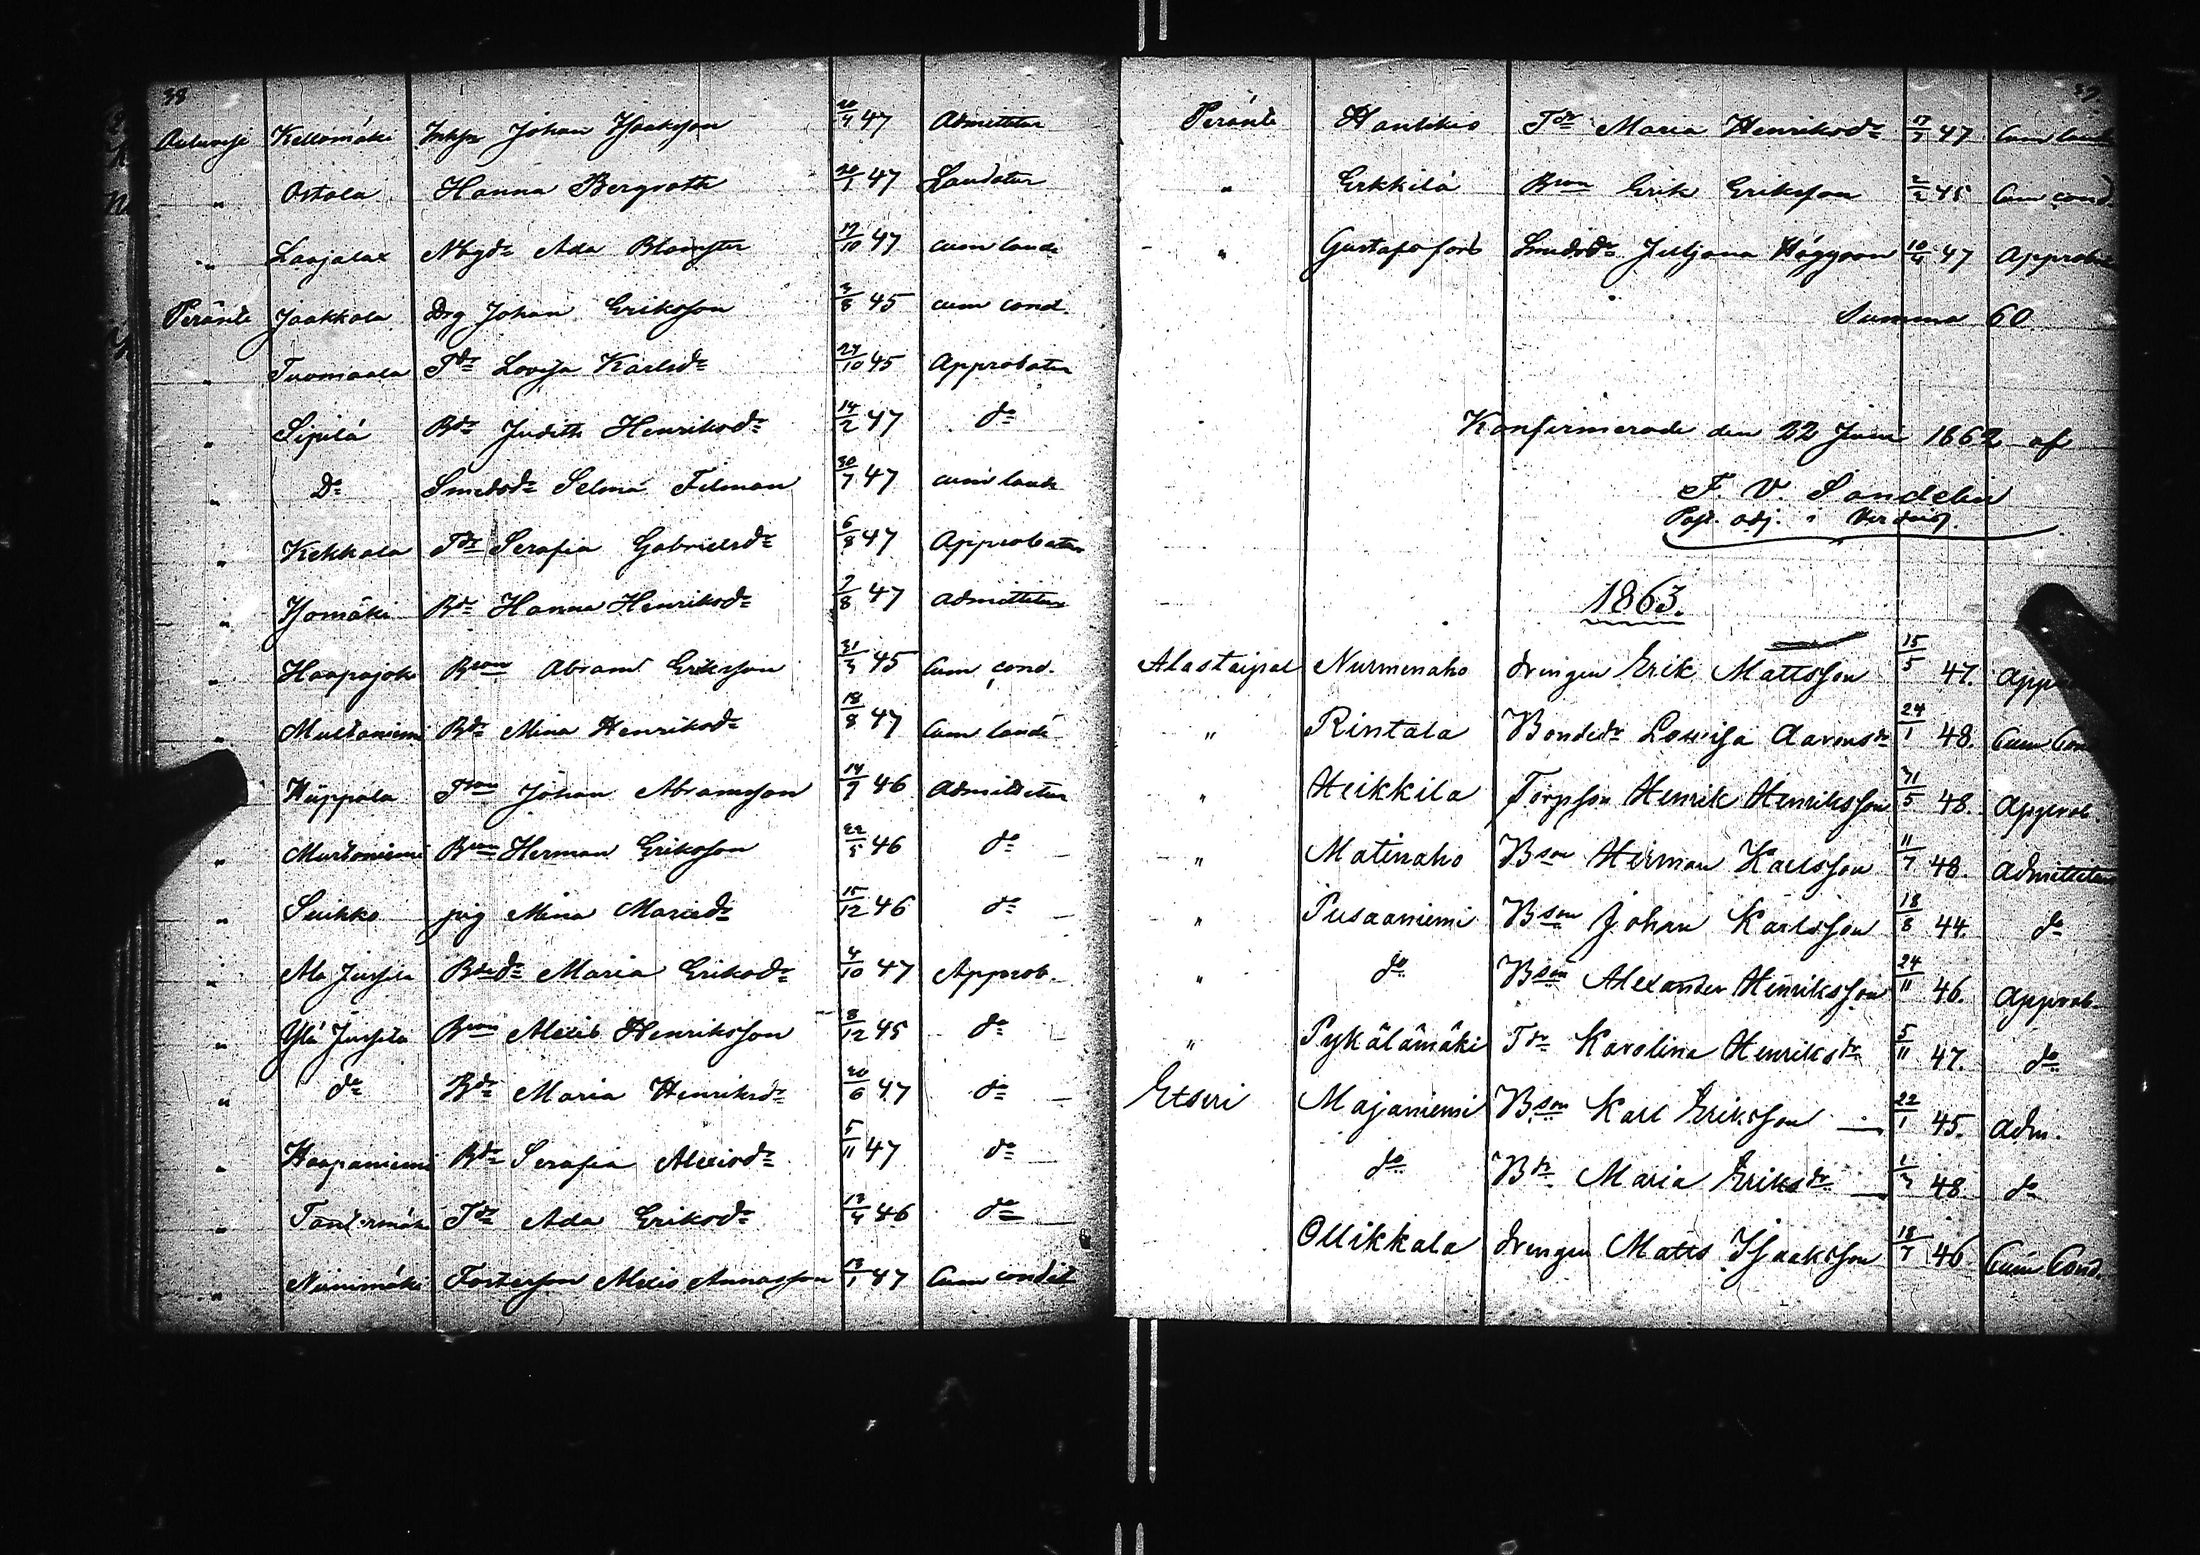 38
Kellomäki Johan Isaksson 47 Admittetur
" Ostala Hanna Bergroth 47 Laudatur
" Laajalax Ada Blomster 17/10 47 cum laude
Peränte Jaakkola Drg Johan Eriksson 45 cum cond.
" Tuomaala Tdr Lovisa Karlsdr 10 45 Approbatur
" Sipilä Bdr Judith Henriksdr 14/2 47 do
" Do Smedsdr Selma Filman 30/7 47 cum laude
" Kekkala Tdr Serafia Gabrielsdr 6/8 47 Approbatur
" Bdr Hanna Henriksdr 7/8 47 Admittetur
" Haapajoki Bson Abram Eriksson 31/3 45 Cum cond.
" Bdr Mina Henriksdr 18/8 47 Cum laude
" Tson Johan Abramsson 46 Admittetur
" Bson Herman Eriksson 22/5 46 do
" Suikko pig Mina Mariedr 15/12 46 do
" Ala Jussila Maria Eriksdr 4/10 47 Approb.
" Ylä Jussila Bson Alexis Henriksson 8/12 45 do
" do Bdr Maria Henriksdr 20/6 47 do
" Haapaniemi Bdr Serafia Alexisdr 5/11 47 do
" Tdr Ada Eriksdr 46 do
" Niinimäki Alexis Annasson 13/1 47 Cum condit
39.
Peränte Hautikis Tdr Maria Henriksdr 47 Cum laude
" Erkkilä Bson Erik Eriksson 2/2 45 Cum cond.
" Gustafsfors Smedsdr Juljana Häggroon 47 Approbatur
Summa 60
Konfirmerade den 22 Juni 1862 af
F. V. Sandelin
Past. adj. i
1863.
Alastaipal Nurmenaho drengen Erik Mattsson 15/5 47. App
" Rintala Bondedr Lovisa Aaronsdr 24/1 48. Cum Con
" Heikkila Torpson Henrik Henriksson 31/5 48. Approb
" Matinaho Bson Herman Karlsson 11/7 48. Admittetur
" Pusaaniemi Bson Johan Karlsson 18/8 44. do
" do Bson Alexander Henriksson 24/11 46. Approb.
" Pykälämäki Tdr Karolina Henriksdr 5/11 47. do
Etseri Majaniemi Bson Karl Eriksson 22/1 45. Adm.
do Bdr Maria Eriksdr 1/3 48. do
Ollikkala drengen Matts Isaksson 18/7 46 Cum Cond.